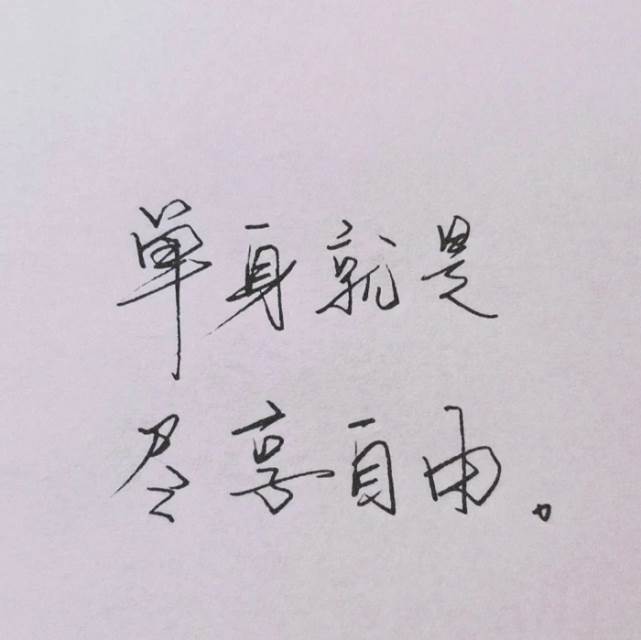 单身就是
尽享自由。